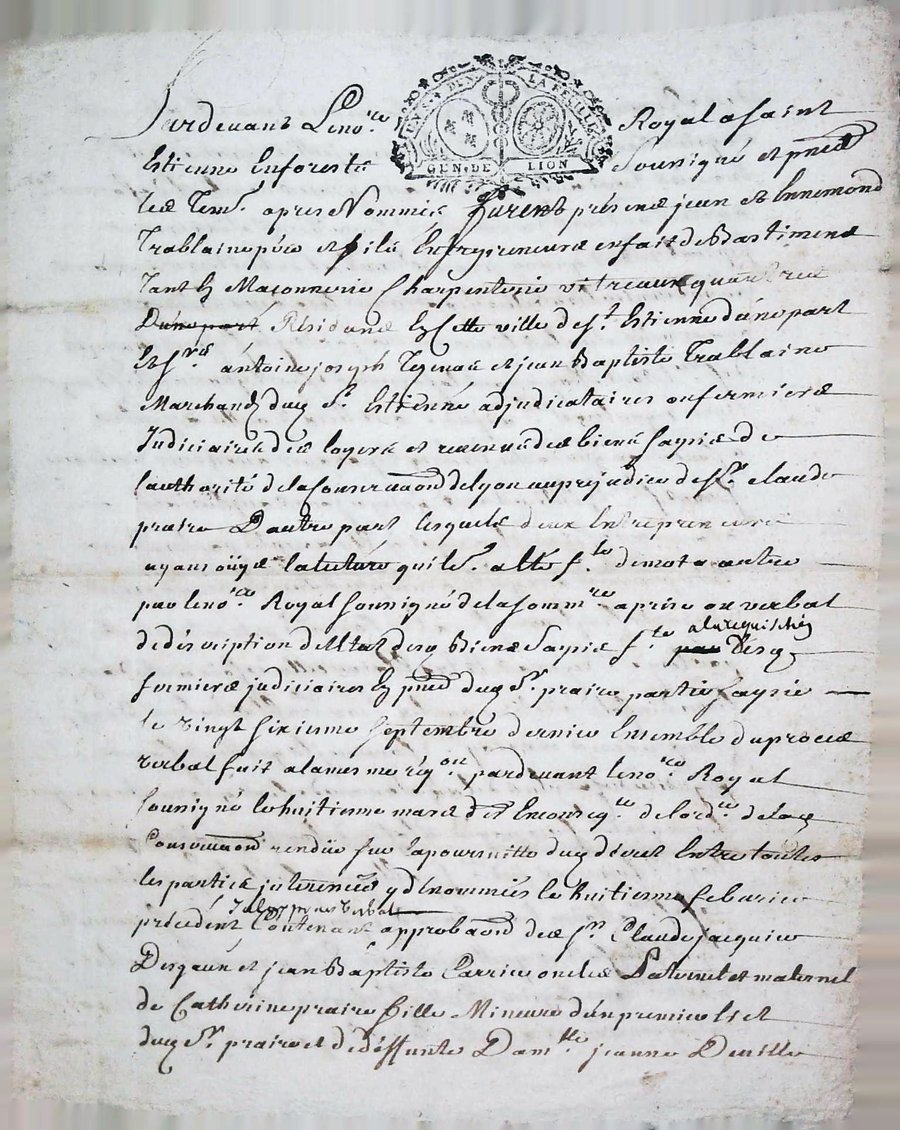 SIX D. DEN. LA FEUILLE
GEN. DE LION
Pardevant Le no.re Royal a Saint
Estienne En forestz Soussigné et pnts
Les Tem. apres Nommés furent présens jean et Ennemond
Trablaine père et fils Entrepreneurs en fait de Bastimens
Tant En Maçonnerie Charpenterie vitreaux qu'autres
D'une part Résidans En Cette ville de St. Estienne d'une part
Et Srs. antoine joseph et jean Baptiste Trablaine
Marchands dud. St. Estienne adjudicataires ou fermiers
Judiciaires des loyers et revenus des biens saysis de
l'authorité de la Conservaon de Lyon au prejudice de Sr. claude
praire D'autre part lesquels deux Entrepreneurs
ayans oüys la lecture qui le.r a été f.te de mot a autre
par le no.re Royal soussigné de la somm.re aprise ou verbal
de description de l'Etat desd. Biens Saysis f.te par a la requisition desd.
fermiers judiciaires En pnce dud. Sr. praire partie saysie
le vingt sixieme septembre dernier Ensemble du procès
verbal fait a la mesme réq.on pardevant le no.re Royal
soussigné le huitieme mars d.t En conseq.ce de l'ord.ce de lad.
Conservaon rendüe sur la poursuitte dud. décret Entre toutes
les parties interessées y dénommées le huitieme febvrier
précédent Iceluy procès verbal Contenant approbaon des Srs. Claude jacquier
et jean Baptiste Carrier oncles Paternel et maternel
de Catherine praire fille Mineure d'un premier lict
dud. Sr. praire et de déffunte Dam.lle jeanne Deville